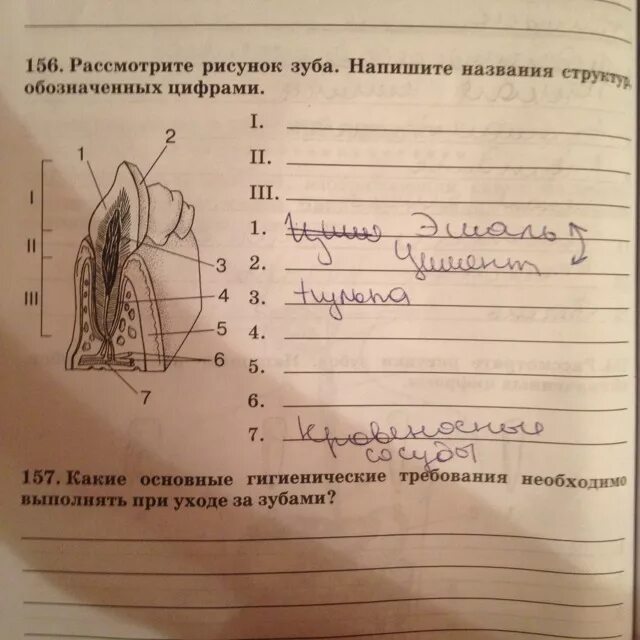 156. Рассмотрите рисунок зуба. Напишите названия структур,
обозначенных цифрами.
I.
II.
III.
1. Эмаль
2. Цемент
3. Пульпа
4.
5.
6.
7. Кровеносные
сосуды
1
2
I
II
III
3
4
5
6
7
157. Какие основные гигиенические требования необходимо
выполнять при уходе за зубами?